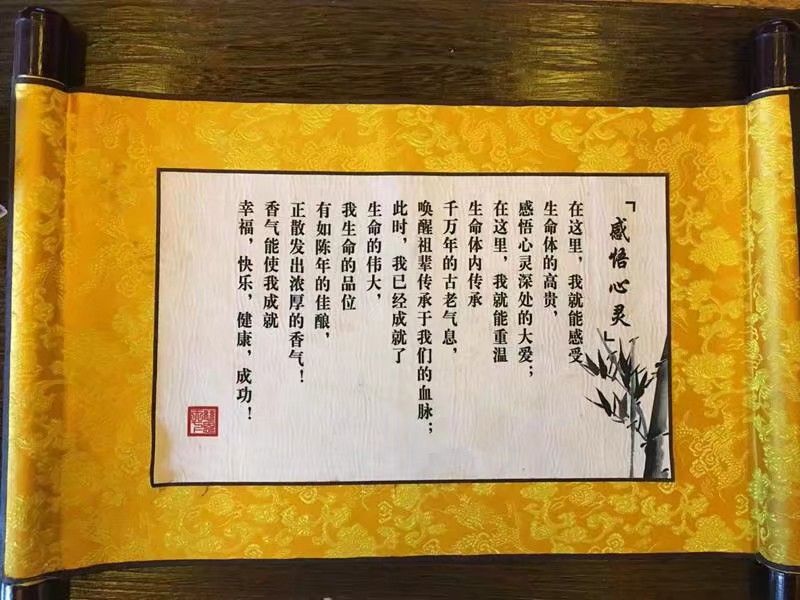 「感悟心灵」
在这里，我就能感受
生命体的高贵，
感悟心灵深处的大爱；
在这里，我就能重温
生命体内传承
千万年的古老气息，
唤醒祖辈传承于我们的血脉；
此时，我已经成就了
生命的伟大，
我生命的品位
有如陈年的佳酿，
正散发出浓厚的香气！
香气能使我成就
幸福，快乐，健康，成功！